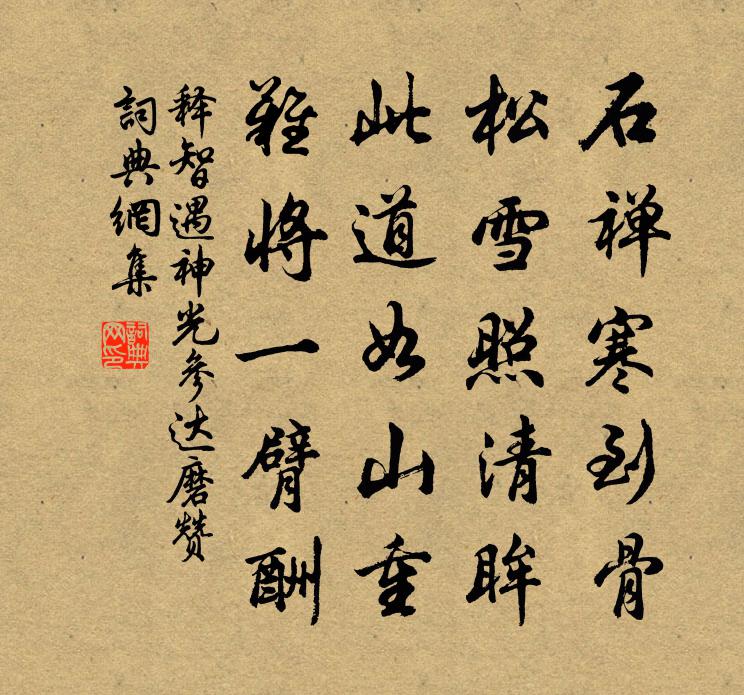 石禅寒到骨
松雪照清眸
此道如山重
难将一臂酬
释智遇神光参达磨赞
詞典網集
詞典网印